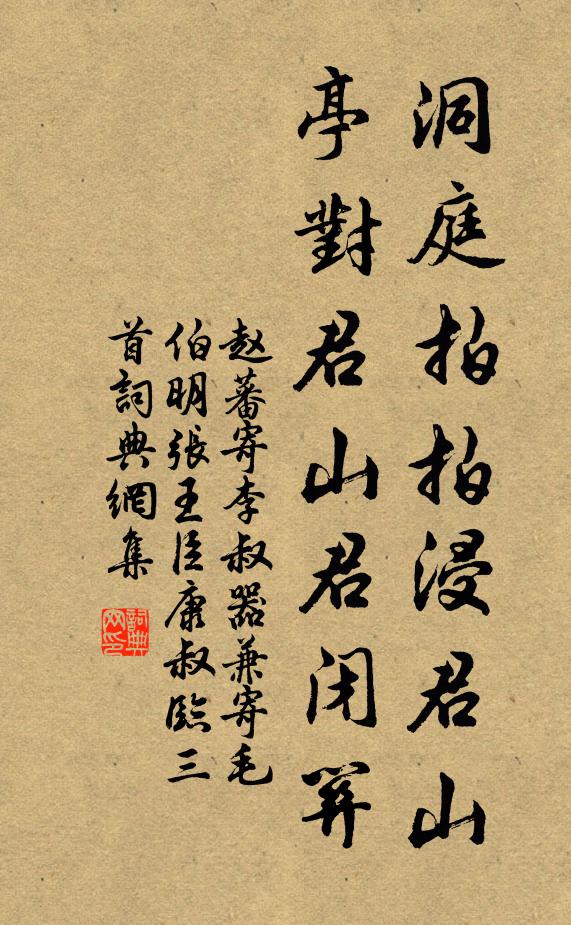 洞庭拍拍浸君山
亭對君山君閉关
赵蕃寄李叔器兼寄毛
伯明張王臣康叔臨三
首詞典網集
詞典
网印